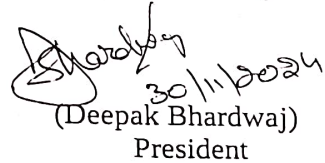 Bhardwaj
30/11/2024
(Deepak Bhardwaj)
President